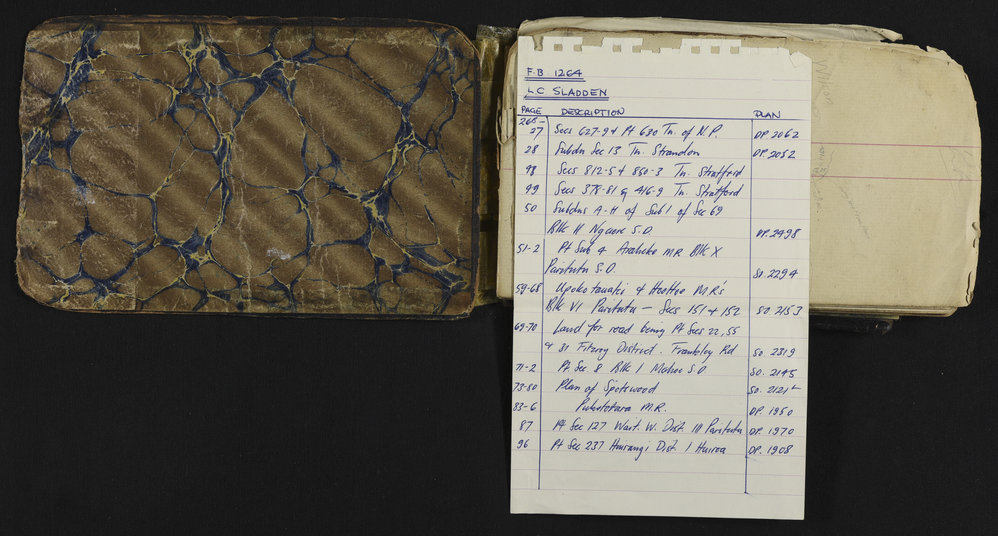 F.B. 1264
L.C SLADDEN
PAGE DESCRIPTION PLAN
26-
27 Secs 627-9 & Pt 630 Tn. of N.P. DP. 2062
28 Subdn Sec 13 Tn. Strandon DP. 2052
Secs 812-5 & 850-3 Tn. Stratford
Secs 378-81 & 416-9 Tn. Stratford
50 Subdns A-H of Sub 1 of Sec 69
Blk II Ngaere S.D. DP. 2498
51-2 Pt Sub 4 Araheke M.R. Blk X
Paritutu S.D. SO. 2294
59-68 Upokotauaki & Hoehoe M.R's
Blk VI Paritutu - Secs 151 & 152 SO 2153
69-70 Land for road being Pt Secs 22, 55
& 31 Fitzroy District. Frankley Rd SO. 2319
71-2 Pt Sec 8 Blk 1 Mahoe S.D. SO. 2145
73-80 Plan of Spotswood SO. 2121
83-6 Puketotara M.R. DP. 1950
87 Pt Sec 127 Wait. W. Dist. III Paritutu DP. 1970
96 Pt Sec 237 Huirangi Dist. 1 Huiroa DP. 1908